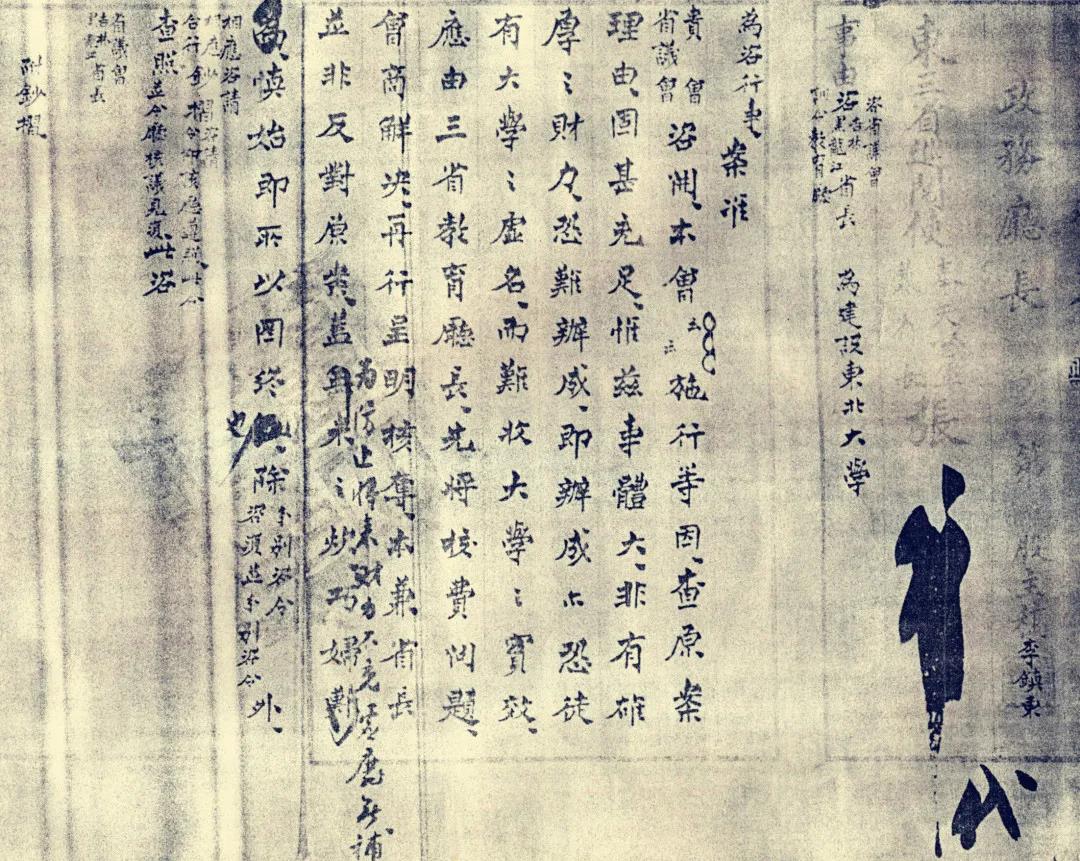 政務廳長
股主稿 李鎮東
東三省巡閱使
張
代
事由 咨 省議會 吉林 黑龍江省長 訓令教育廳 為建設東北大學
為咨行事
案准
貴會 省議會 咨開、本會 云云 施行等因、查原案
理由、固甚充足、惟茲事體大、非有雄
厚之財力、恐難辦成、即辦成亦恐徒
有大學之虛名、而難收大學之實效、
應由三省教育廳長、先將校費問題、
會商解決、再行呈明核奪、本兼省長
並非反對原案、蓋無米之炊巧婦
為防止將來財力不充 無補
慎始即所以圖終也、除分別咨令 咨復並分別咨令 外、
相應咨請
查照並令廳核議見復此咨
省議會
吉林 省長
附鈔摺